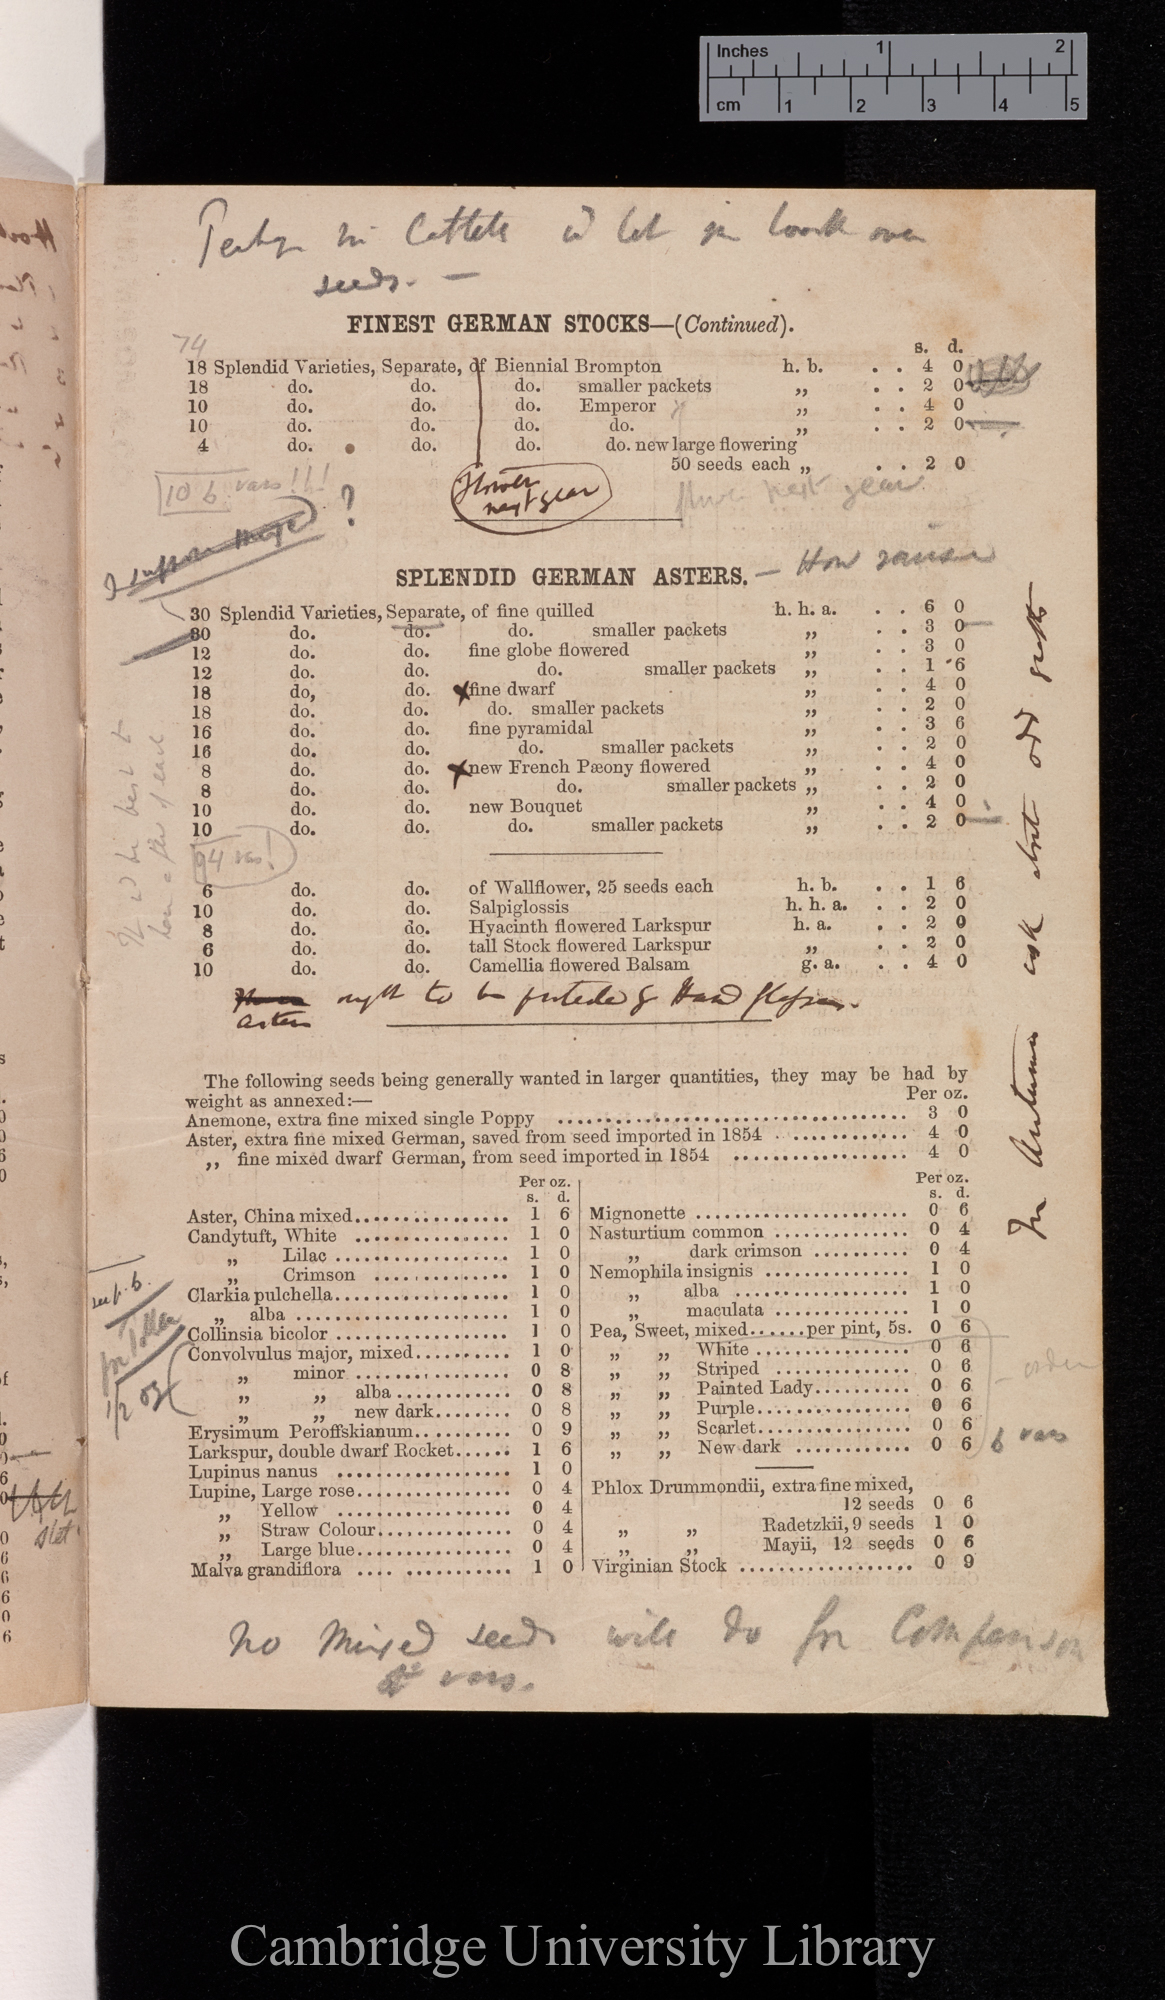 Inches 1 2
cm 1 2 3 4 5
in Cattell's let look over
seeds. —
FINEST GERMAN STOCKS—(Continued).
74
s. d.
18 Splendid Varieties, Separate, of Biennial Brompton h. b. . . 4 0
18 do. do. do. smaller packets „ . . 2 0
10 do. do. do. Emperor „ . . 4 0
10 do. do. do. do. „ . . 2 0
4 do. do. do. do. new large flowering
50 seeds each „ . . 2 0
106 vars!!!
flower
next year
next year
I suppose ?
SPLENDID GERMAN ASTERS. — How raised
30 Splendid Varieties, Separate, of fine quilled h. h. a. . . 6 0
30 do. do. do. smaller packets „ . . 3 0
12 do. do. fine globe flowered „ . . 3 0
12 do. do. do. smaller packets „ . . 1 6
18 do, do. fine dwarf „ . . 4 0
18 do. do. do. smaller packets „ . . 2 0
16 do. do. fine pyramidal „ . . 3 6
16 do. do. do. smaller packets „ . . 2 0
8 do. do. new French Pæony flowered „ . . 4 0
8 do. do. do. smaller packets „ . . 2 0
10 do. do. new Bouquet „ . . 4 0
10 do. do. do. smaller packets „ . . 2 0
94 vars!
It wd be best to
have a few of each
6 do. do. of Wallflower, 25 seeds each h. b. . . 1 6
10 do. do. Salpiglossis h. h. a. . . 2 0
8 do. do. Hyacinth flowered Larkspur h. a. . . 2 0
6 do. do. tall Stock flowered Larkspur „ . . 2 0
10 do. do. Camellia flowered Balsam g. a. . . 4 0
ought to be protected by Hand glasses.
asters
In Autumn ask about odd
The following seeds being generally wanted in larger quantities, they may be had by
weight as annexed:—
Per oz.
Anemone, extra fine mixed single Poppy ........ 3 0
Aster, extra fine mixed German, saved from seed imported in 1854 ........ 4 0
„ fine mixed dwarf German, from seed imported in 1854 ........ 4 0
Per oz.
s. d.
Aster, China mixed........ 1 6
Candytuft, White ........ 1 0
„ Lilac ........ 1 0
„ Crimson ........ 1 0
Clarkia pulchella........ 1 0
„ alba ........ 1 0
Collinsia bicolor ........ 1 0
Convolvulus major, mixed........ 1 0
„ minor ........ 0 8
„ „ alba ........ 0 8
„ „ new dark........ 0 8
Erysimum Peroffskianum........ 0 9
Larkspur, double dwarf Rocket...... 1 6
Lupinus nanus ........ 1 0
Lupine, Large rose........ 0 4
„ Yellow ........ 0 4
„ Straw Colour........ 0 4
„ Large blue........ 0 4
Malva grandiflora .... ........ 1 0
see p. 6.
1/2 oz
Per oz.
s. d.
Mignonette ........ 0 6
Nasturtium common ........ 0 4
„ dark crimson ........ 0 4
Nemophila insignis ........ 1 0
„ alba ........ 1 0
„ maculata ........ 1 0
Pea, Sweet, mixed......per pint, 5s. 0 6
„ „ White ........ 0 6
„ „ Striped ........ 0 6
„ „ Painted Lady........ 0 6
„ „ Purple........ 0 6
„ „ Scarlet........ 0 6
„ „ New dark ........ 0 6
order
6 vars
Phlox Drummondii, extra fine mixed,
12 seeds 0 6
„ „ Radetzkii, 9 seeds 1 0
„ „ Mayii, 12 seeds 0 6
Virginian Stock ........ 0 9
No Mixed seeds will do for Comparison
of vars.
Cambridge University Library